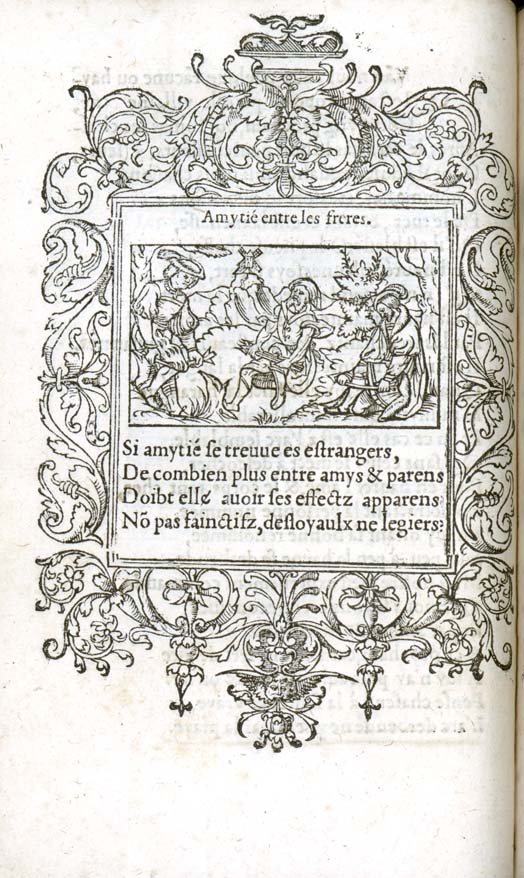 Amytié entre les freres.
Si amytié ſe treuue es eſtrangers,
De combien plus entre amys & parens
Doibt elle auoir ſes effectz apparens
Nõ pas fainctifz, deſloyaulx ne legiers?